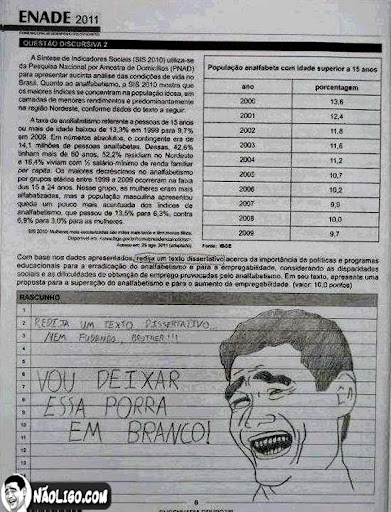 ENADE 2011
QUESTÃO DISCURSIVA 2
A Síntese de Indicadores Sociais (SIS 2010) utiliza-se
da Pesquisa Nacional por Amostra de Domicílios (PNAD)
para apresentar sucinta análise das condições de vida no
Brasil. Quanto ao analfabetismo, a SIS 2010 mostra que
os maiores índices se concentram na população idosa, em
camadas de menores rendimentos e predominantemente
na região Nordeste, conforme dados do texto a seguir.
A taxa de analfabetismo referente a pessoas de 15 anos
ou mais de idade baixou de 13,3% em 1999 para 9,7%
em 2009. Em números absolutos, o contingente era de
14,1 milhões de pessoas analfabetas. Dessas, 42,6%
tinham mais de 60 anos, 52,2% residiam no Nordeste
e 16,4% viviam com ½ salário-mínimo de renda familiar
per capita. Os maiores decréscimos no analfabetismo
por grupos etários entre 1999 a 2009 ocorreram na faixa
dos 15 a 24 anos. Nesse grupo, as mulheres eram mais
alfabetizadas, mas a população masculina apresentou
queda um pouco mais acentuada dos índices de
analfabetismo, que passou de 13,5% para 6,3%, contra
6,9% para 3,0% para as mulheres.
SIS 2010: Mulheres mais escolarizadas são mães mais tarde e têm menos filhos.
Acesso em: 25 ago. 2011 (adaptado).
População analfabeta com idade superior a 15 anos
ano porcentagem
2000 13,6
2001 12,4
2002 11,8
2003 11,6
2004 11,2
2005 10,7
2006 10,2
2007 9,9
2008 10,0
2009 9,7
Fonte: IBGE
Com base nos dados apresentados, redija um texto dissertativo acerca da importância de políticas e programas
educacionais para a erradicação do analfabetismo e para a empregabilidade, considerando as disparidades
sociais e as dificuldades de obtenção de emprego provocadas pelo analfabetismo. Em seu texto, apresente uma
proposta para a superação do analfabetismo e para o aumento da empregabilidade. (valor: 10,0 pontos)
RASCUNHO
1
2 REDIJA UM TEXTO DISSERTATIVO
3 NEM FUDENDO, BROTHER!!!
4
5
6
7 VOU DEIXAR
8
9 ESSA PORRA
10
11 EM BRANCO!
12
13
8
NÃOLIGO.COM